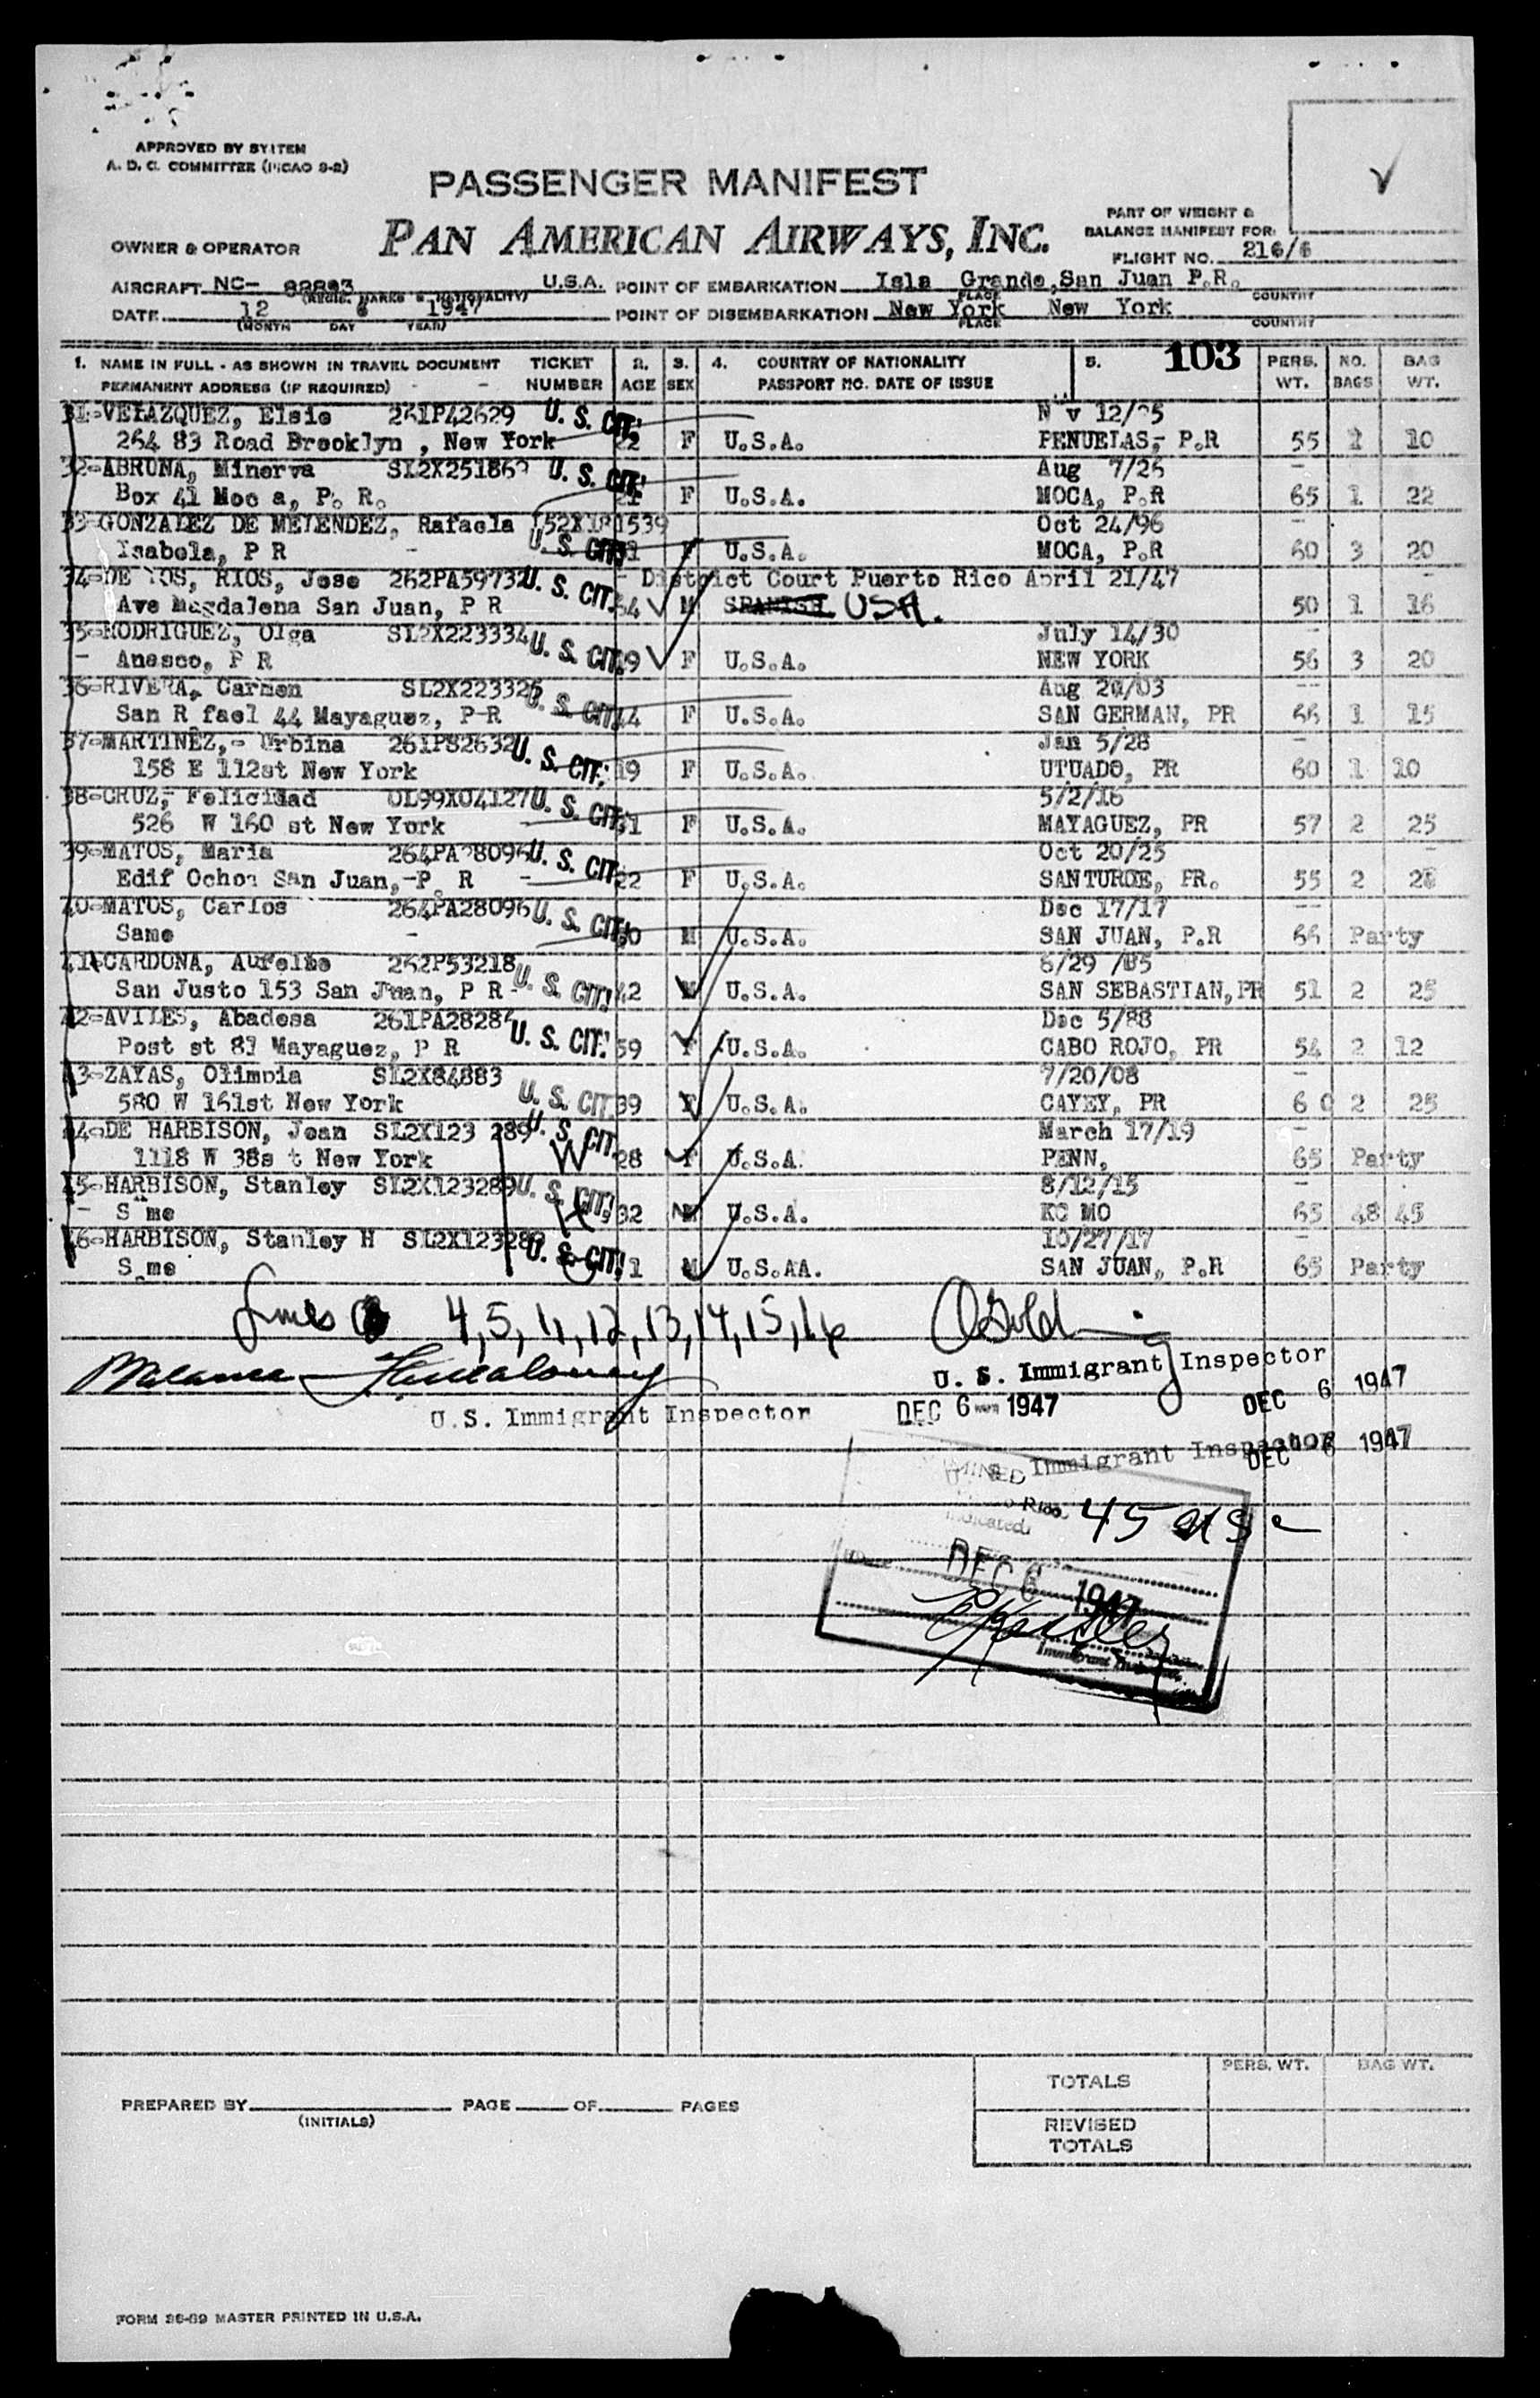 APPROVED BY SYSTEM
A. D. C. COMMITTEE (PICAO 9-2)
PASSENGER MANIFEST
PAN AMERICAN AIRWAYS, INC.
PART OF WEIGHT &
BALANCE MANIFEST FOR:
OWNER & OPERATOR
FLIGHT NO. 216/6
AIRCRAFT NC- U.S.A. POINT OF EMBARKATION Isla Grande, San Juan P.R.
(REGIS. MARKS & NATIONALITY) PLACE COUNTRY
DATE 12 6 1947 POINT OF DISEMBARKATION New York New York
(MONTH DAY YEAR) PLACE COUNTRY
1. NAME IN FULL - AS SHOWN IN TRAVEL DOCUMENT TICKET 2. 3. 4. COUNTRY OF NATIONALITY 5. 103 PERS. NO. BAG
PERMANENT ADDRESS (IF REQUIRED) NUMBER AGE SEX PASSPORT NO. DATE OF ISSUE WT. BAGS WT.
31-VELAZQUEZ, Elsie 261P42629 U. S. CIT. N v 12/25
264 83 Road Brooklyn , New York 22 F U.S.A. PENUELAS, P.R 55 1 10
32-ABRUNA, Minerva U. S. CIT. Aug 7/26
Box 41 Moc a, P. R. 21 F U.S.A. MOCA, P.R 65 1 22
33-GONZALEZ DE MELENDEZ, Rafaela Oct 24/96
Isabela, P R U. S. CIT. F U.S.A. MOCA, P.R 60 3 20
34-DE LOS, RIOS, Jose 262PA59732 U. S. CIT. District Court Puerto Rico April 21/47
Ave Magdalena San Juan, P R 54 M SPANISH USA. 50 1 16
35-RODRIGUEZ, Olga SL2X223334 U. S. CIT. July 14/30
Anasco, P R F U.S.A. NEW YORK 56 3 20
36-RIVERA, Carmen SL2X223325 U. S. CIT. Aug 20/03
San R fael 44 Mayaguez, P-R 44 F U.S.A. SAN GERMAN, PR 66 1 15
37-MARTINEZ,- Urbina 261P82632 U. S. CIT. Jan 5/28
158 E 112st New York 19 F U.S.A. UTUADO, PR 60 1 10
38-CRUZ, Felicidad OL99X04127 U. S. CIT. 5/2/16
526 W 160 st New York 31 F U.S.A. MAYAGUEZ, PR 57 2 25
39-MATOS, Maria U. S. CIT. Oct 20/25
Edif Ochoa San Juan,-P R 22 F U.S.A. SANTURCE, PR. 55 2 28
40-MATOS, Carlos 264PA28096 U. S. CIT. Dec 17/17
Same 30 M U.S.A. SAN JUAN, P.R 66 Party
41-CARDONA, Aurelio 262P53218 6/29 /05
San Justo 153 San Juan, P R U. S. CIT. 42 M U.S.A. SAN SEBASTIAN, PR 51 2 25
42-AVILES, Abadesa U. S. CIT. Dec 5/88
Post st 81 Mayaguez, P R 59 F U.S.A. CABO ROJO, PR 54 2 12
43-ZAYAS, Olimpia SL2X84883 7/20/08
580 W 161st New York U. S. CIT. 39 F U.S.A. CAYEY, PR 6 0 2 25
44-DE HARBISON, Jean SL2X123 289 U. S. CIT. March 17/19
1118 W 38s t New York W 28 F U.S.A. PENN, 65 Party
45-HARBISON, Stanley SL2X123289 U. S. CIT. 8/12/15
S me H 32 M U.S.A. KC MO 65 48 45
46-HARBISON, Stanley H SL2X123289 10/27/17
S me U. S. CIT. 1 M U.S.AA. SAN JUAN, P.R 65 Party
Lines 4, 5, 11, 12, 13, 14, 15, 16
U. S. Immigrant Inspector
U.S. Immigrant Inspector DEC 6 1947 DEC 6 1947
Immigrant Inspector DEC 6 1947
Rico. 45 USC
indicated.
DEC 6 1947
Immigrant Inspector.
TOTALS PERS. WT. BAG WT.
PREPARED BY PAGE OF PAGES
(INITIALS)
REVISED
TOTALS
FORM 36-89 MASTER PRINTED IN U.S.A.